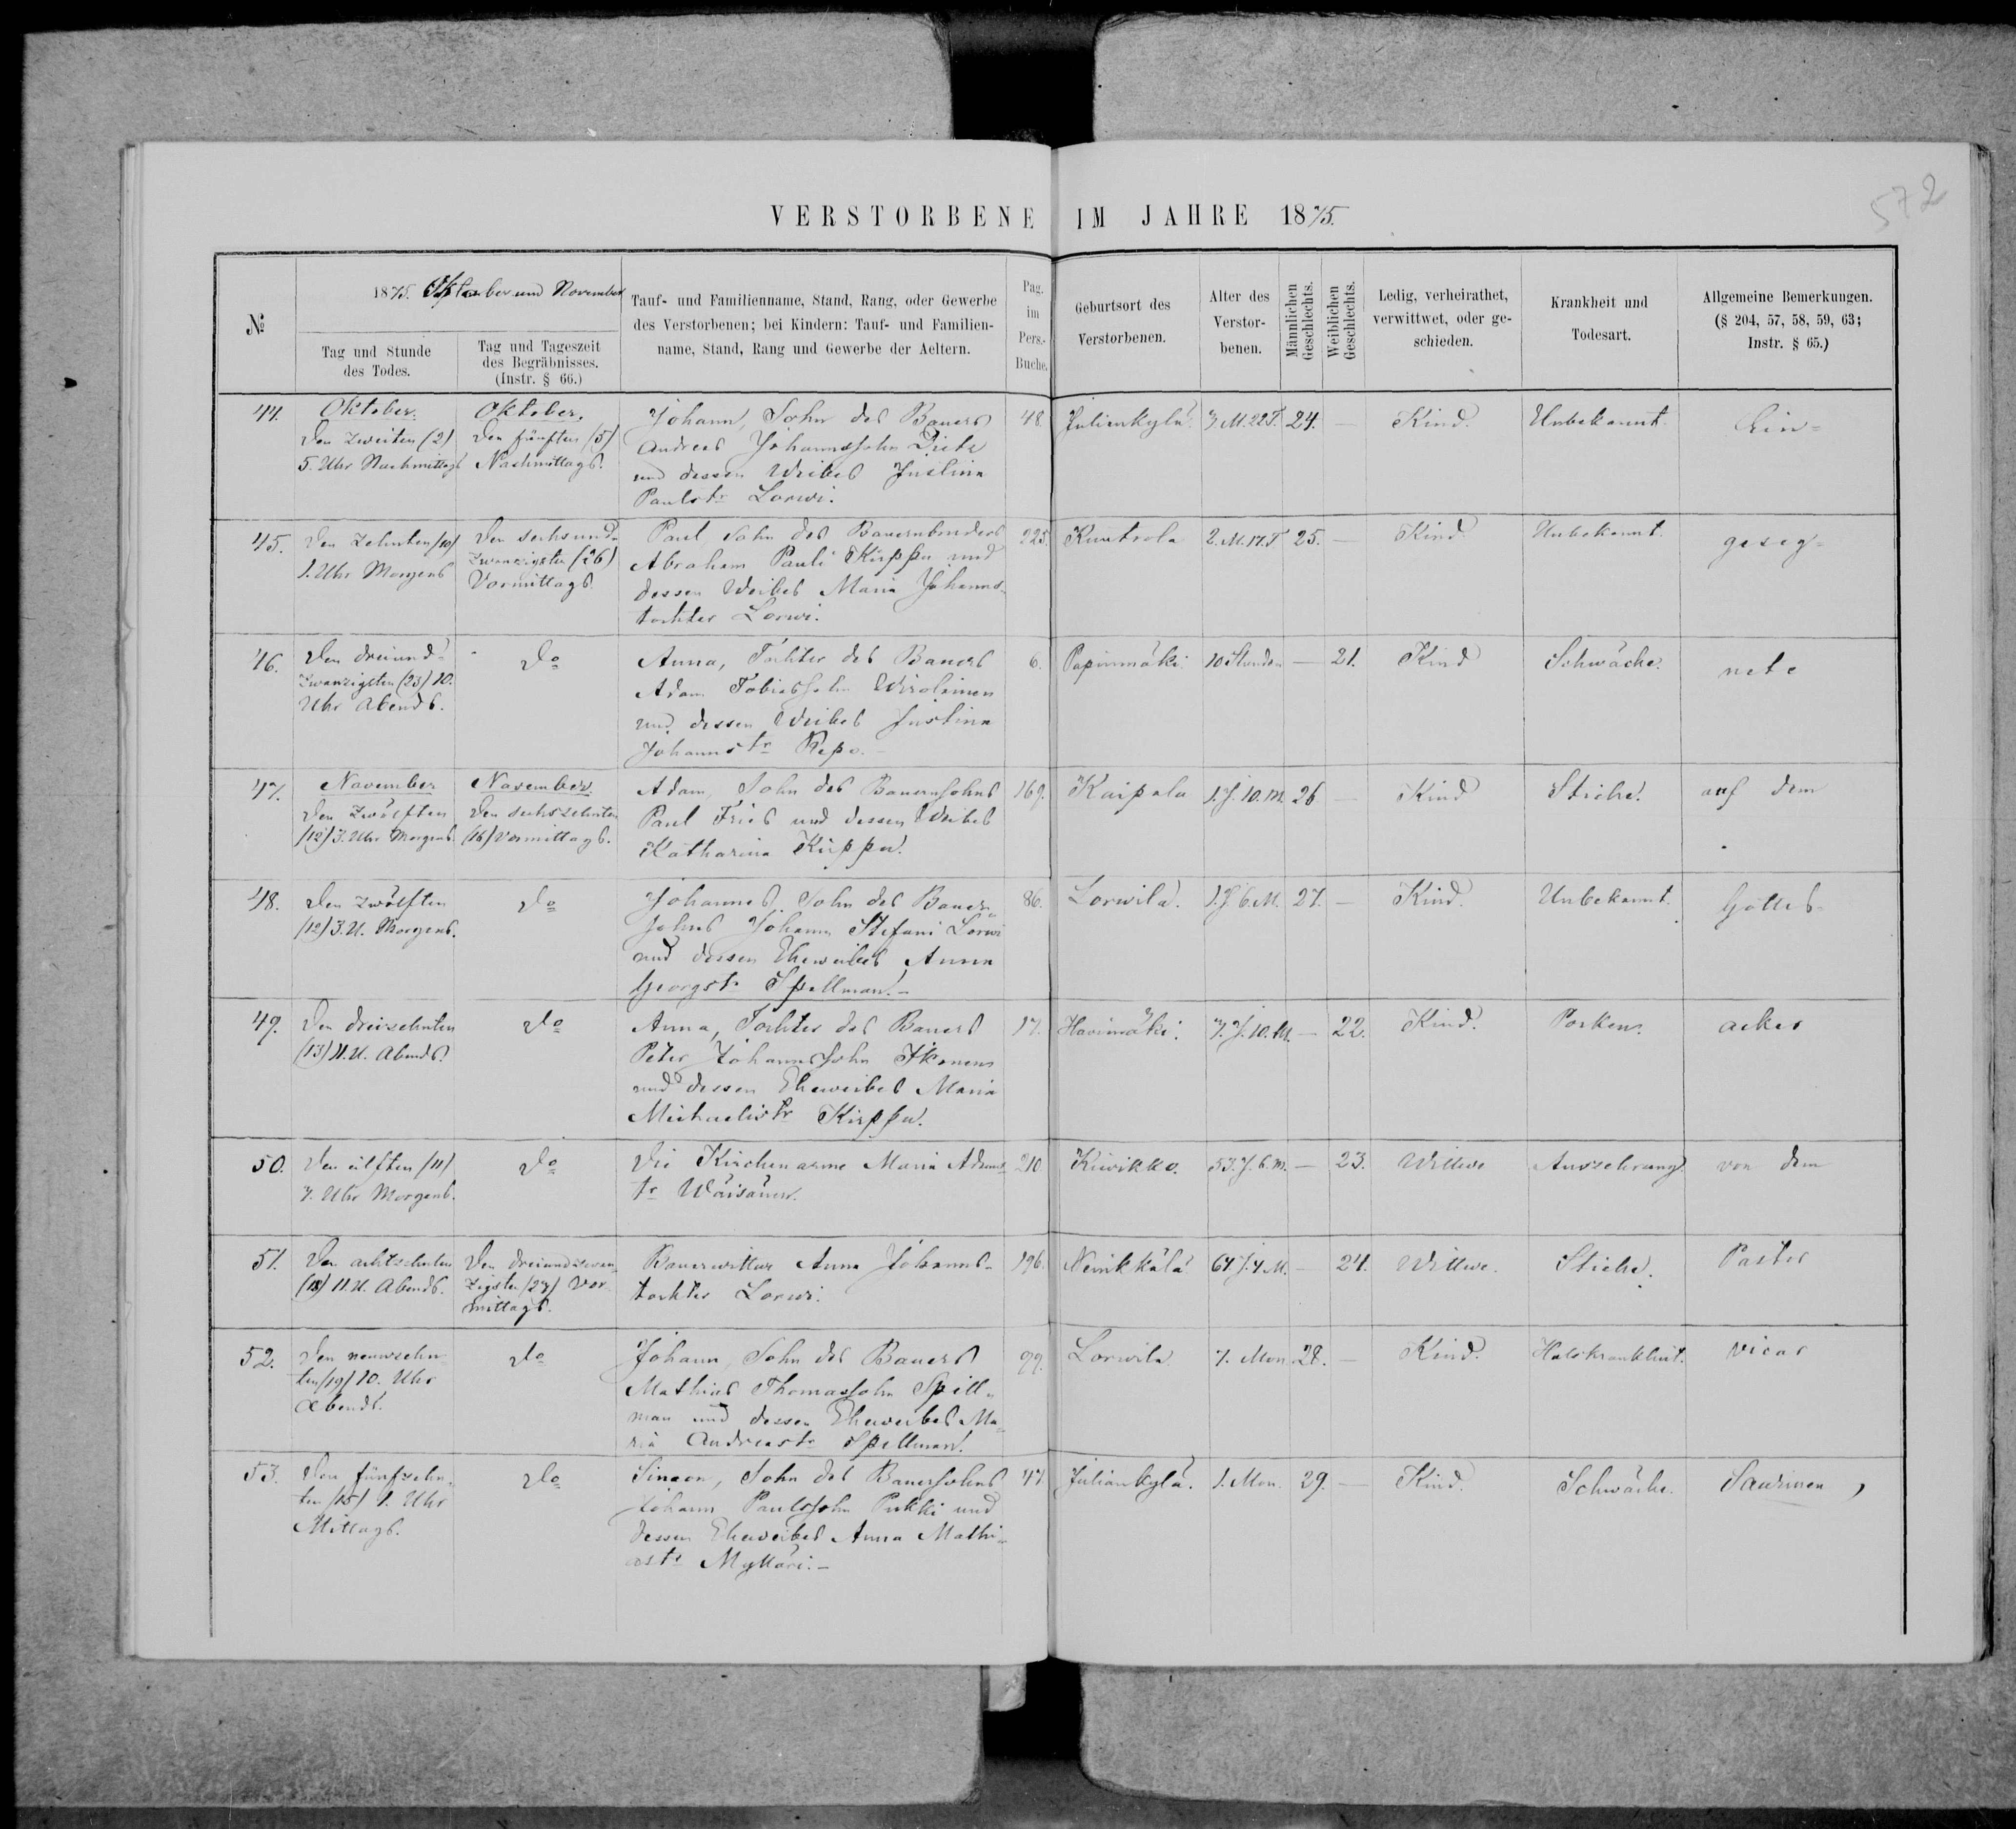 572
VERSTORBENE IM JAHRE 1875.
№
1875. Oktober und November
Tag und Stunde
des Todes.
Tag und Tageszeit
des Begräbnisses.
(Instr. § 66.)
Tauf- und Familienname, Stand, Rang, oder Gewerbe
des Verstorbenen; bei Kindern: Tauf- und Familien-
name, Stand, Rang und Gewerbe der Aeltern.
Pag.
im
Pers.-
Buche.
Geburtsort des
Verstorbenen.
Alter des
Verstor-
benen.
Männlichen
Geschlechts.
Weiblichen
Geschlechts.
Ledig, verheirathet,
verwittwet, oder ge-
schieden.
Krankheit und
Todesart.
Allgemeine Bemerkungen.
(§ 204, 57, 58, 59, 63;
Instr. § 65.)
44.
Oktober.
Den Zweiten (2)
5. Uhr Nachmittags
Oktober.
Den fünften (5)
Nachmittags.
Johann, Sohn des Bauers
Andreas Johannssohn
und dessen Weibes Justina
Paulstr Lorwi.
48.
Juliankylä.
7 M. 22 T.
24.
—
Kind.
Unbekannt.
Ein=
45.
Den Zehnten (10)
1. Uhr Morgens
Den sechsund-
zwanzigsten (26)
Vormittags.
Paul, Sohn des Bauernbruders
Abraham Pauli Kirppu und
dessen Weibes Maria Johanns-
tochter Lorwi.
225.
2. M. 17. T
25.
—
Kind.
Unbekannt.
geseg=
46.
Den dreiund-
zwanzigsten (23) 10.
Uhr Abends.
do
Anna, Tochter des Bauers
Adam Tobiassohn Wirolainen
und dessen Weibes Justina
Johannstr Repo.
6.
Papinmäki.
10 Stunden
—
21.
Kind
Schwäche.
nete
47.
November
Den Zwölften
(12) 3. Uhr Morgens.
November.
Den sechszehnten
(16) Vormittags.
Adam, Sohn des Bauernsohns
Paul Fries und dessen Weibes
Katharina Kirppu.
169.
Kaipala
1. J. 10. M.
26
—
Kind
Stiche.
auf dem
48.
Den Zwölften
(12) 3. U. Morgens.
do
Johannes, Sohn des Bauer-
sohns Johann Stefani Lorwi
und dessen Eheweibes Anna
Georgstr Spellman.—
86.
Lorwila.
1. J. 6. M.
27.
—
Kind.
Unbekannt.
Gottes-
49.
Den dreizehnten
(13) 11. U. Abends.
do
Anna, Tochter des Bauers
Peter Johannssohn Ikonens
und dessen Eheweibes Maria
Michaelistr Kirppu.
17.
7. J. 10. M.
—
22.
Kind.
Pocken.
acker
50.
Den eilften (11)
7. Uhr Morgens.
do
Die Kirchenarme Maria Adams-
tr Wäisänen.
210
Kiwikko.
53. J. 6. M.
—
23.
Wittwe
Auszehrung.
von dem
51.
Den achtzehnten
(18) 11. U. Abends.
Den dreiundzwan-
zigsten (23) Vor-
mittags.
Bauerwittwe Anna Johanns-
tochter Lorwi.
196.
64. J. 4 M.
—
24.
Wittwe.
Stiche.
Pastor
52.
Den neunzehn-
ten (19) 10. Uhr
Abends.
do
Johann, Sohn des Bauers
Mathias Thomassohn Spell-
man und dessen Eheweibes Ma-
ria Andreastr Spellman.
99.
Lorwila.
7. Mon.
28.
—
Kind.
Halskrankheit.
vicar
53.
Den fünfzehn-
ten (15) 1. Uhr
Mittags.
do
Simeon, Sohn des Bauersohns
Johann Paulssohn Pukki und
dessen Eheweibes Anna Mathi-
astr Mylläri.—
47.
Juliankylä.
1. Mon.
29.
—
Kind.
Schwäche.